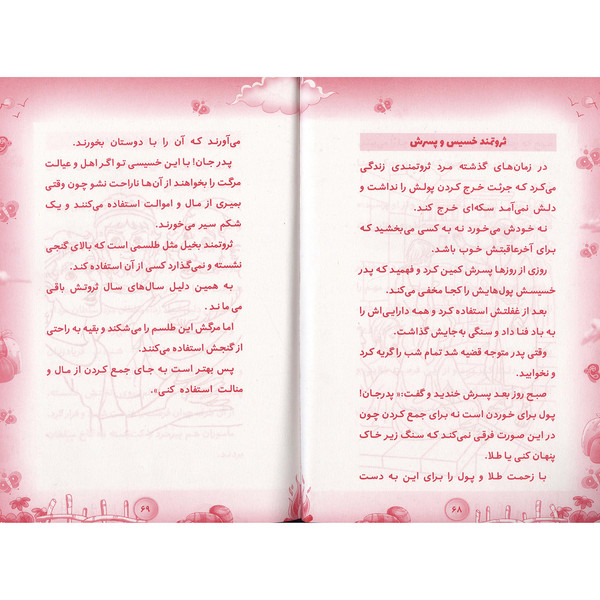 ثروتمند خسیس و پسرش
در زمان‌های گذشته مرد ثروتمندی زندگی
می‌کرد که جرئت خرج کردن پولش را نداشت و
دلش نمی‌آمد سکه‌ای خرج کند.
نه خودش می‌خورد نه به کسی می‌بخشید که
برای آخرعاقبتش خوب باشد.
روزی از روزها پسرش کمین کرد و فهمید که پدر
خسیسش پول‌هایش را کجا مخفی می‌کند.
بعد از غفلتش استفاده کرد و همه دارایی‌اش را
به باد فنا داد و سنگی به‌جایش گذاشت.
وقتی پدر متوجه قضیه شد تمام شب را گریه کرد
و نخوابید.
صبح روز بعد پسرش خندید و گفت:« پدرجان!
پول برای خوردن است نه برای جمع کردن چون
در این صورت فرقی نمی‌کند که سنگ زیر خاک
پنهان کنی یا طلا.
با زحمت طلا و پول را برای این به دست
۶۸
می‌آورند که آن را با دوستان بخورند.
پدر جان! با این خسیسی تو اگر اهل و عیالت
مرگت را بخواهند از آن‌ها ناراحت نشو چون وقتی
بمیری از مال و اموالت استفاده می‌کنند و یک
شکم سیر می‌خورند.
ثروتمند بخیل مثل طلسمی است که بالای گنجی
نشسته و نمی‌گذارد کسی از آن استفاده کند.
به همین دلیل سال‌های سال ثروتش باقی
می‌ماند.
اما مرگش این طلسم را می‌شکند و بقیه به راحتی
از گنجش استفاده می‌کنند.
پس بهتر است به جای جمع کردن از مال و
منالت استفاده کنی».
۶۹